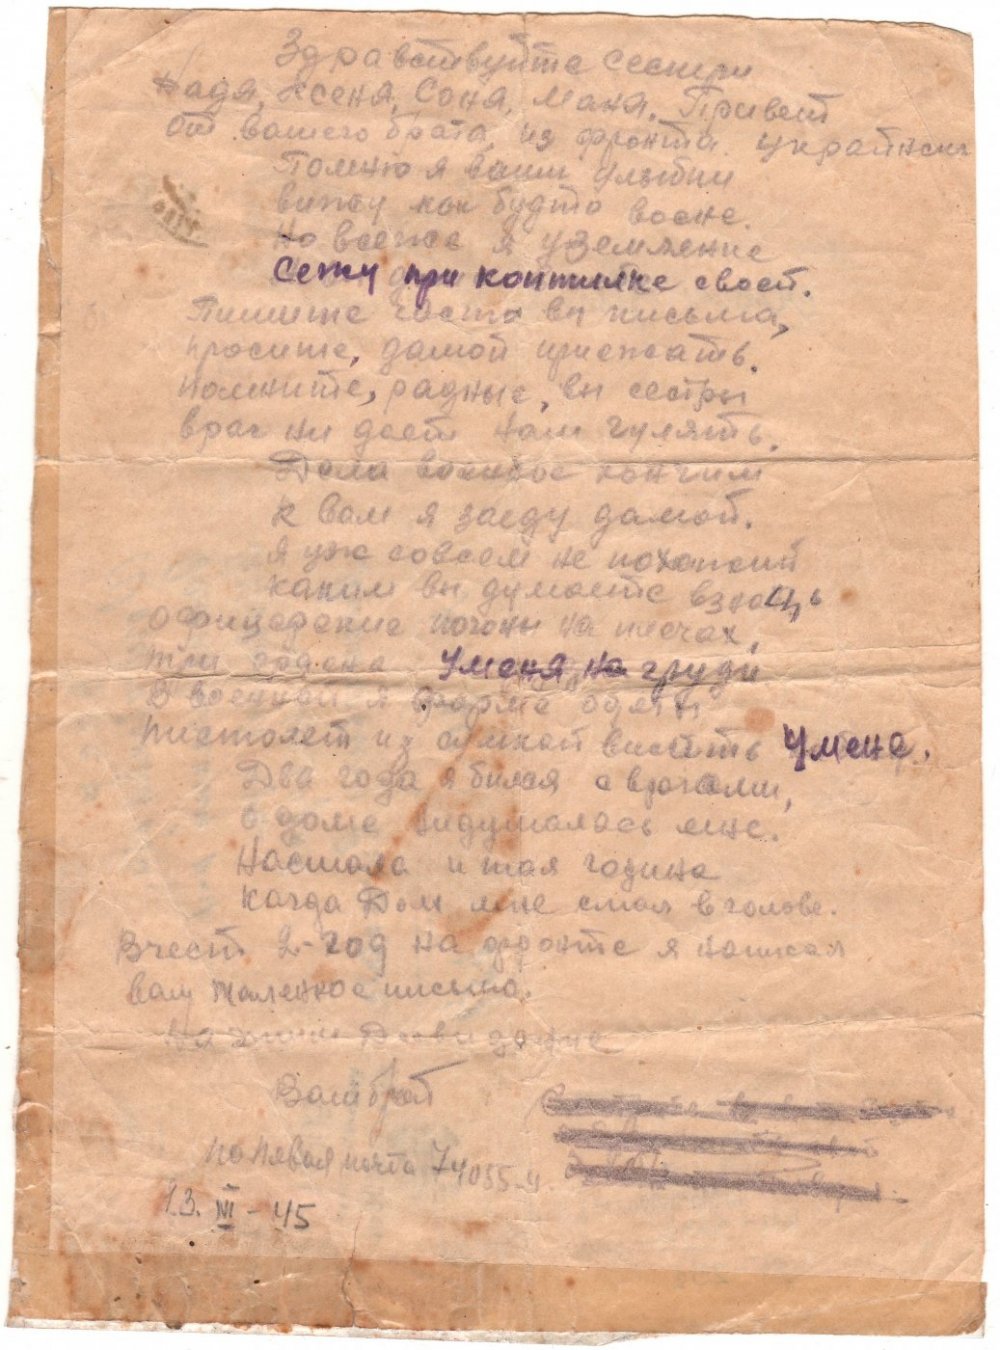 Здравствуйте сестри
Надя, Ксеня, Соня, Маня. Привет
от вашего брата из фронта
Помню я ваши улыбки
вижу как будто восне.
Но всеже я уземлянке
Сежу при коптилке своей.
Пишите часто вы письма,
просите, дамой приежать.
Помните, радные, вы сестры
враг ни дает нам гулять.
Дела военное кончим
к вам я заеду дамой.
Я уж совсем не похожий
каким вы думаете
Офицерские погоны на плечах,
три ордена Уменя на груди
В военной я форме
Пистолет из сумкой Умене.
Два года я бился с врагами,
о доме нидумалась мне.
Настала и тая година
Кагда Дом мне стал в голове.
Вчест 2-год на фронте я написал
вам маленкое письмо.
Ваш брат
полявая почта
13. VI - 45